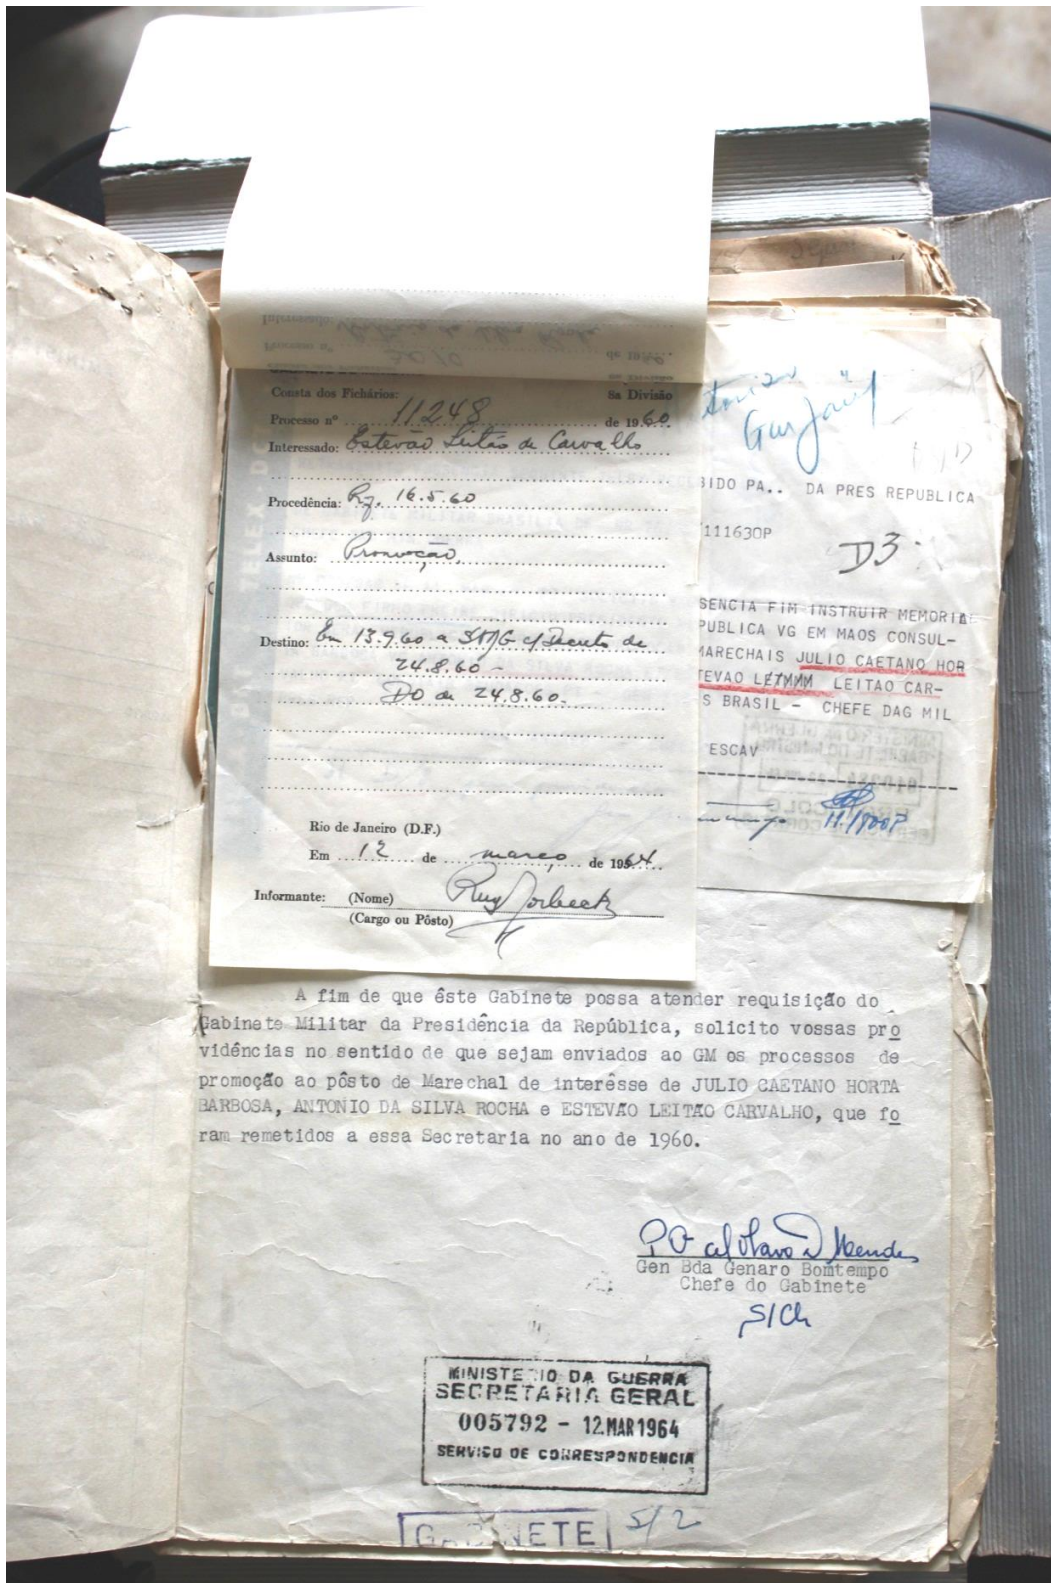 Consta dos Fichários: 8a Divisão
Processo nº 11248 de 1960.
Interessado: Estevão Leitão de Carvalho
Procedência: Rj. 16.5.60
Assunto: Promoção.
Destino: Em 13.9.60 a SM/G c/Decreto de
24.8.60 -
DO de 24.8.60.
Rio de Janeiro (D.F.)
Em 12 de março de 1964
Informante: (Nome) Ruy
(Cargo ou Pôsto)
BIDO PA.. DA PRES REPUBLICA
111630P
D3
SENCIA FIM INSTRUIR MEMORIAL
PUBLICA VG EM MAOS CONSUL-
MARECHAIS JULIO CAETANO HOR
TEVAO LETMMM LEITAO CAR-
S BRASIL - CHEFE DAG MIL
ESCAV
11/1800P
A fim de que êste Gabinete possa atender requisição do
Gabinete Militar da Presidência da República, solicito vossas pro
vidências no sentido de que sejam enviados ao GM os processos de
promoção ao pôsto de Marechal de interêsse de JULIO CAETANO HORTA
BARBOSA, ANTONIO DA SILVA ROCHA e ESTEVÃO LEITÃO CARVALHO, que fo
ram remetidos a essa Secretaria no ano de 1960.
Gen Bda Genaro Bomtempo
Chefe do Gabinete
S/Ch
MINISTERIO DA GUERRA
SECRETARIA GERAL
005792 - 12.MAR1964
SERVIÇO DE CORRESPONDENCIA
GABINETE S/2